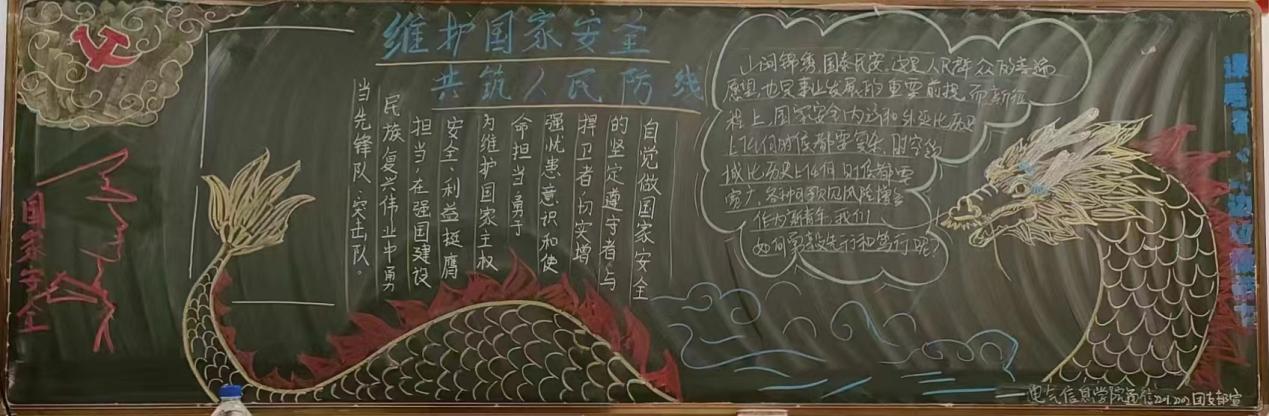 维护国家安全
共筑人民防线
自觉做国家安全
的坚定遵守者与
捍卫者,切实增
强忧患意识和使
命担当,勇于
为维护国家主权
安全、利益挺膺
担当,在强国建设
民族复兴伟业中勇
当先锋队、突击队。
山河锦秀,国泰民安,这是人民群众的普遍
愿望,也是事业发展的重要前提,而新征
程上,国家安全内涵和外延比历史
上任何时候都要宽广
域比历史上任何时候都要
宽广,各种可
作为新青年,我们
如何
国家安全
电气信息学院通信 团支部宣